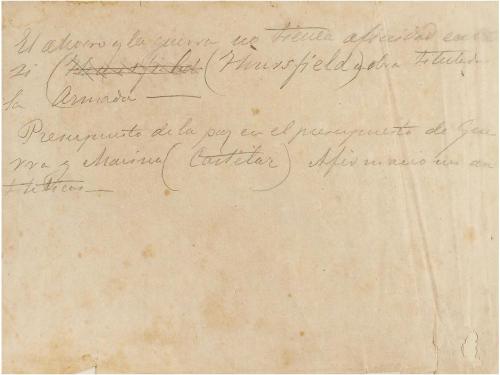 El ahorro y la guerra no tienen afinidad entre
si (Thursfield) (Thursfield) y obra titulada
la Armada —
Presupuesto de la paz en el presupuesto de Gue-
rra y Marina (Castelar) Afirmaciones an-
titéticas —